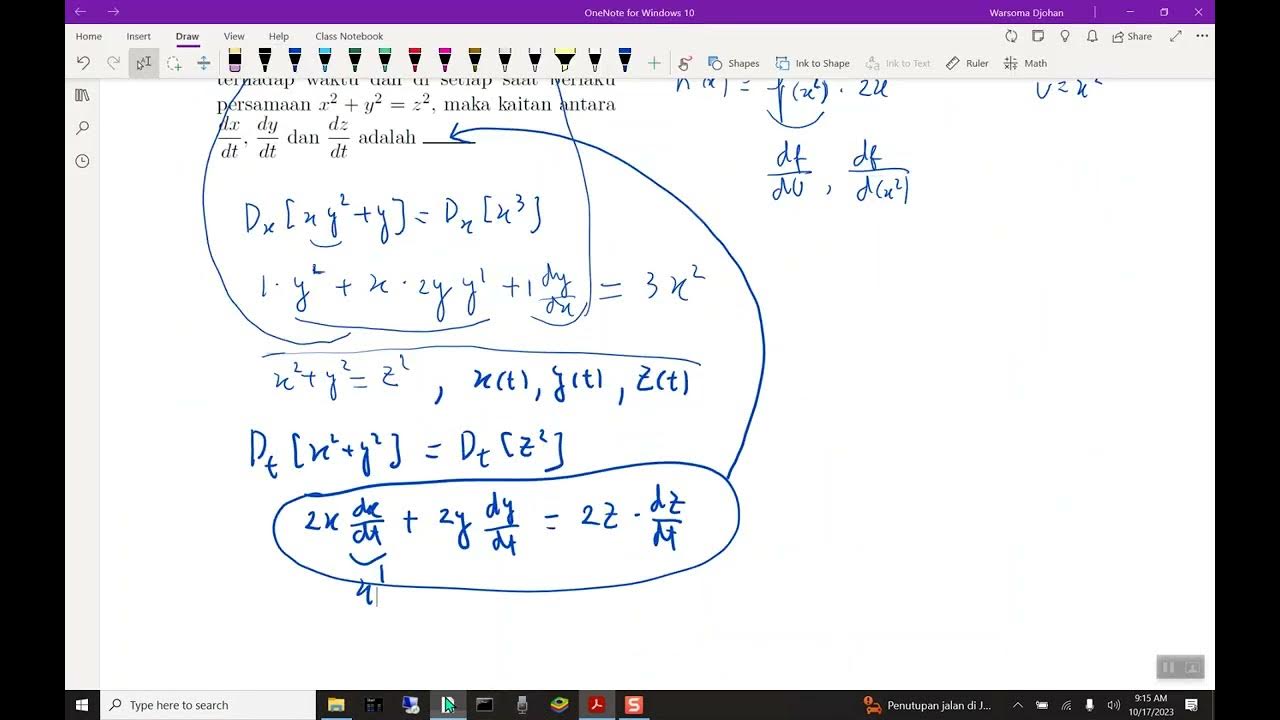 OneNote for Windows 10
Warsoma Djohan
Home Insert Draw View Help Class Notebook
Share
Shapes Ink to Shape Ink to Text Ruler Math
terhadap waktu dan di setiap saat berlaku
persamaan x² + y² = z², maka kaitan antara
dx/dt, dy/dt dan dz/dt adalah ____
2x
U = x²
df/dU , df/d(x²)
Dₓ [x y² + y] = Dₓ [x³]
1 · y² + x · 2y y' + 1 dy/dx = 3x²
x² + y² = z² , x(t), y(t), z(t)
Dₜ [x² + y²] = Dₜ [z²]
2x dx/dt + 2y dy/dt = 2z · dz/dt
x'
Type here to search
Penutupan jalan di J...
9:15 AM
10/17/2023